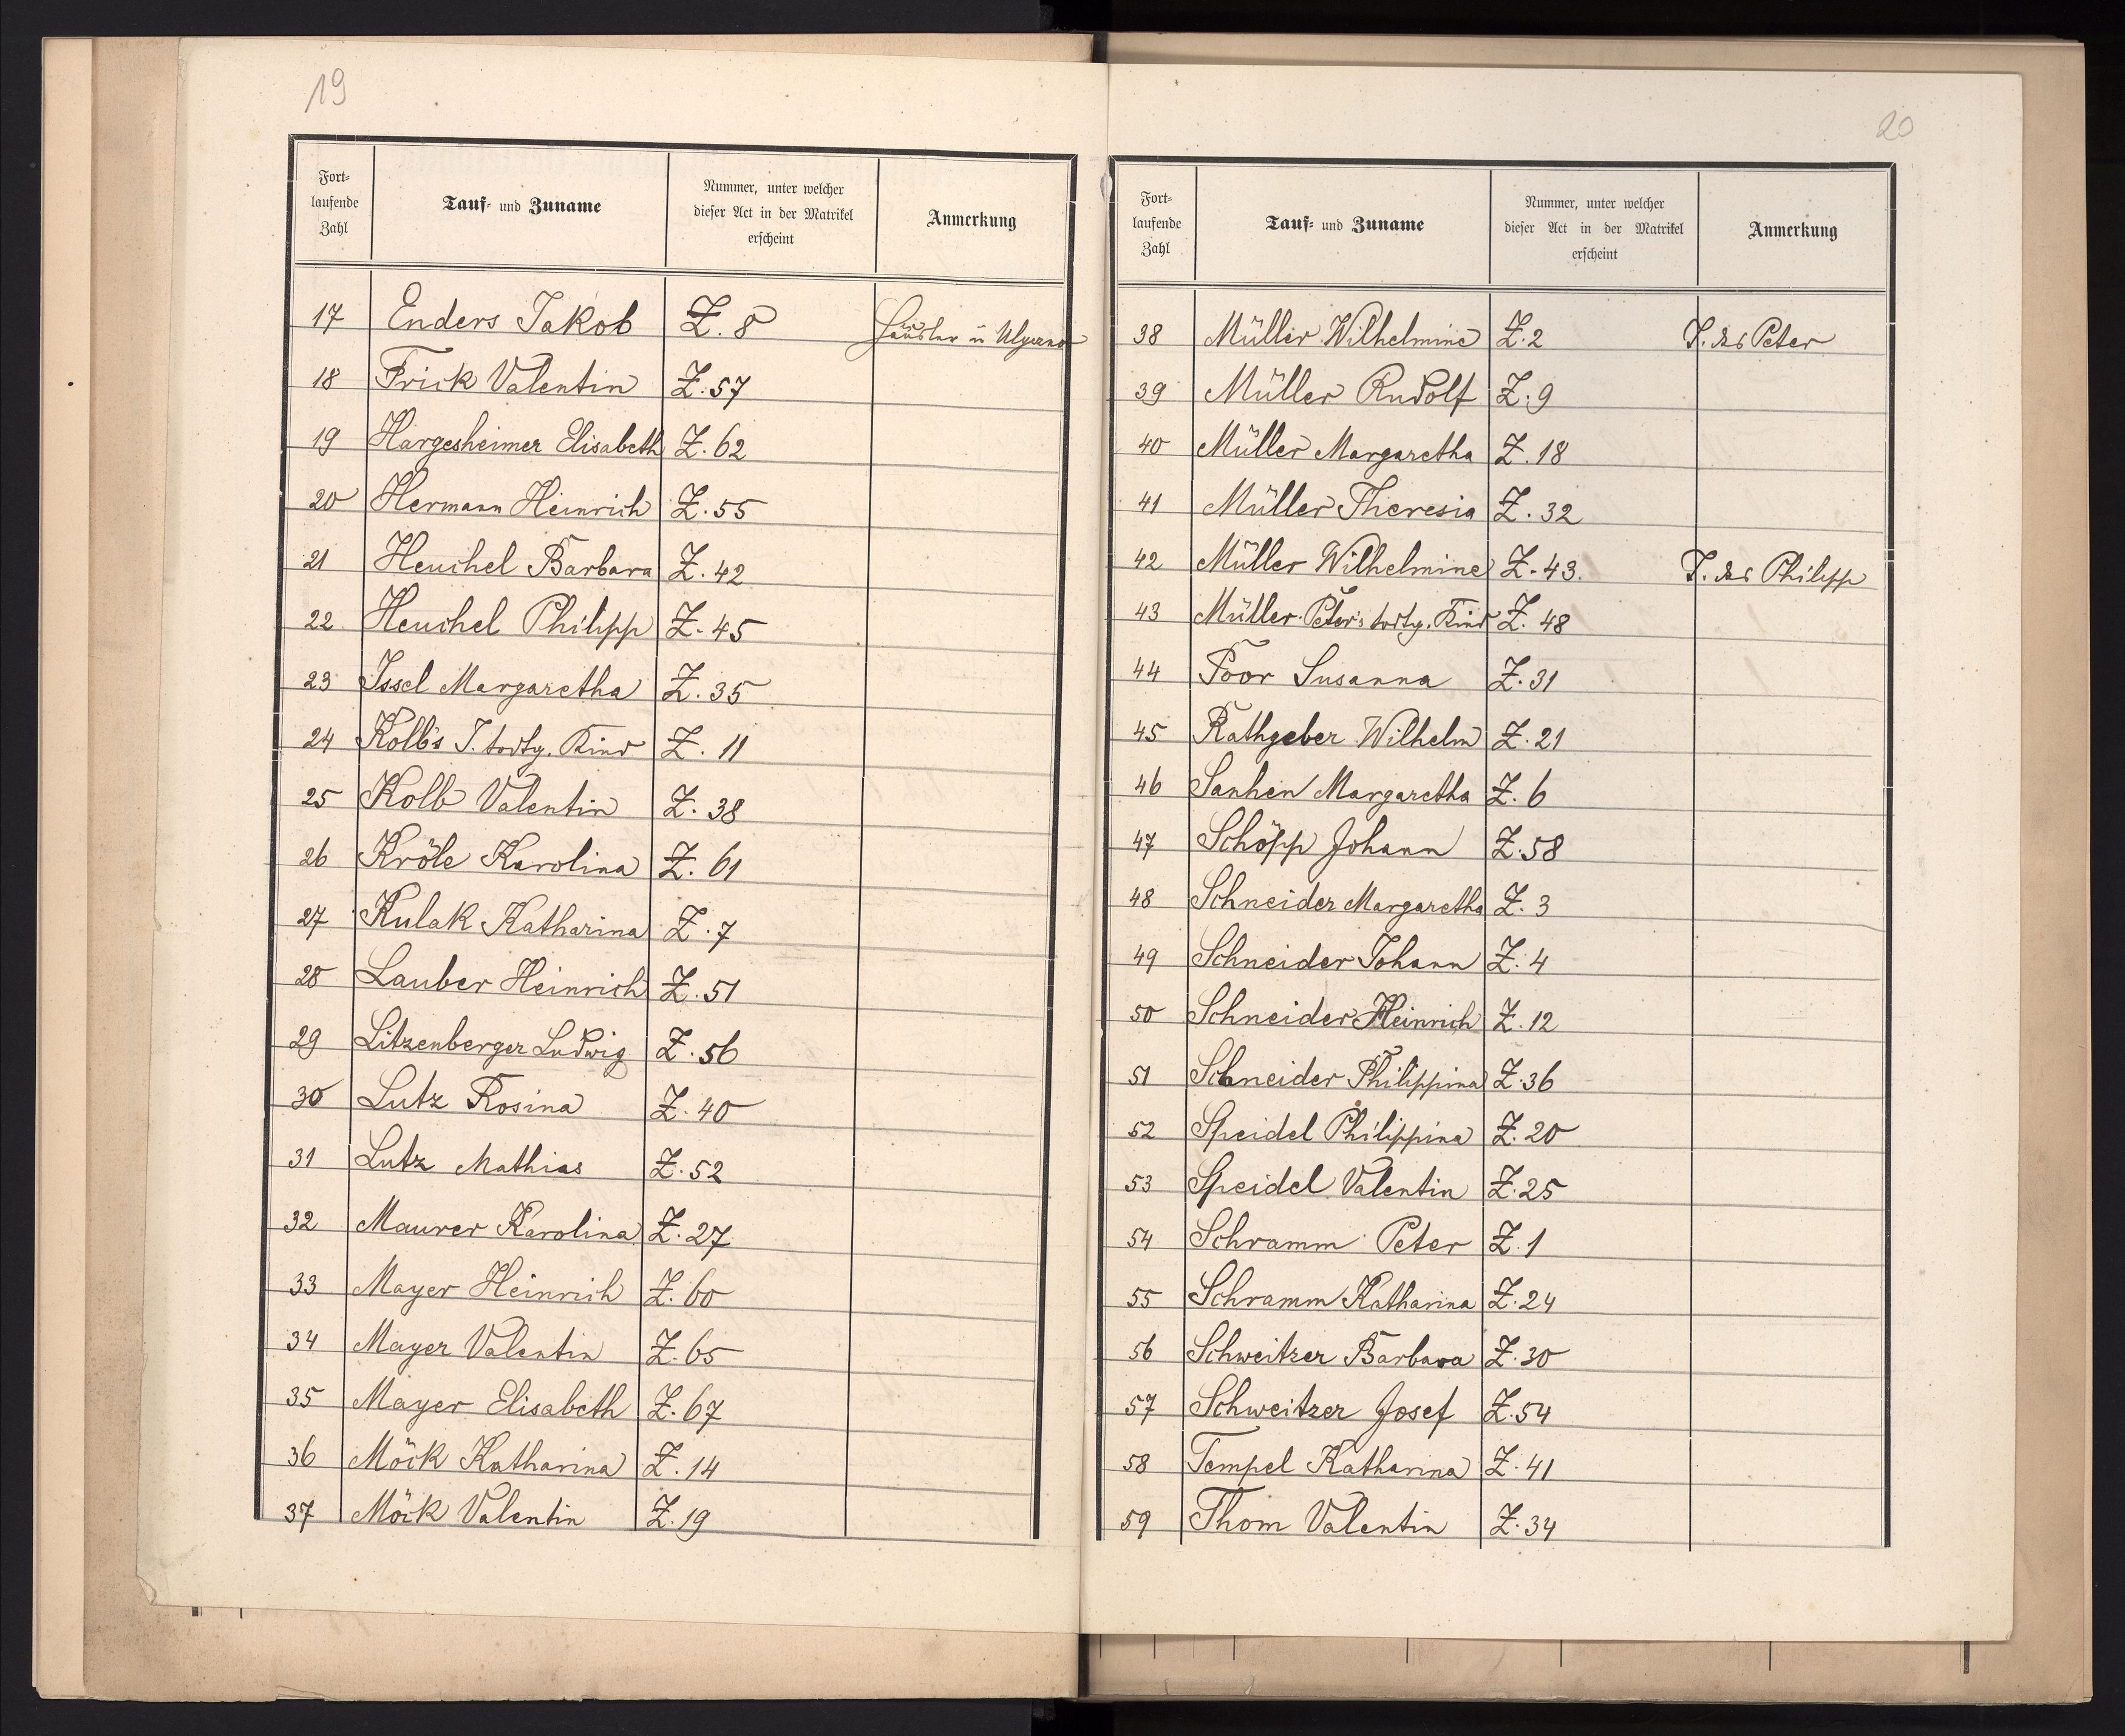 19
Fort-
laufende
Zahl
Tauf- und Zuname
Nummer, unter welcher
dieser Act in der Matrikel
erscheint
Anmerkung
17 Enders Jakob Z. 8 Häusler u.
18 Frick Valentin Z. 57
19 Hargesheimer Elisabeth Z. 62
20 Hermann Heinrich Z. 55
21 Heuchel Barbara Z. 42
22 Heuchel Philipp Z. 45
23 Issel Margaretha Z. 35
24 Kolb's J. todtg. Kind Z. 11
25 Kolb Valentin Z. 38
26 Kröle Karolina Z. 61
27 Kulak Katharina Z. 7
28 Lauber Heinrich Z. 51
29 Litzenberger Ludwig Z. 56
30 Lutz Rosina Z. 40
31 Lutz Mathias Z. 52
32 Maurer Karolina Z. 27
33 Mayer Heinrich Z. 60
34 Mayer Valentin Z. 65
35 Mayer Elisabeth Z. 67
36 Möck Katharina Z. 14
37 Möck Valentin Z. 19
20
Fort-
laufende
Zahl
Tauf- und Zuname
Nummer, unter welcher
dieser Act in der Matrikel
erscheint
Anmerkung
38 Müller Wilhelmine Z. 2 T. des Peter
39 Müller Rudolf Z. 9
40 Müller Margaretha Z. 18
41 Müller Theresia Z. 32
42 Müller Wilhelmine Z. 43. T. des Philipp
43 Müller Peter's todtg. Kind Z. 48
44 Poor Susanna Z. 31
45 Rathgeber Wilhelm Z. 21
46 Sanhen Margaretha Z. 6
47 Schöpp Johann Z. 58
48 Schneider Margaretha Z. 3
49 Schneider Johann Z. 4
50 Schneider Heinrich Z. 12
51 Schneider Philippina Z. 36
52 Speidel Philippina Z. 20
53 Speidel Valentin Z. 25
54 Schramm Peter Z. 1
55 Schramm Katharina Z. 24
56 Schweitzer Barbara Z. 30
57 Schweitzer Josef Z. 54
58 Tempel Katharina Z. 41
59 Thom Valentin Z. 34